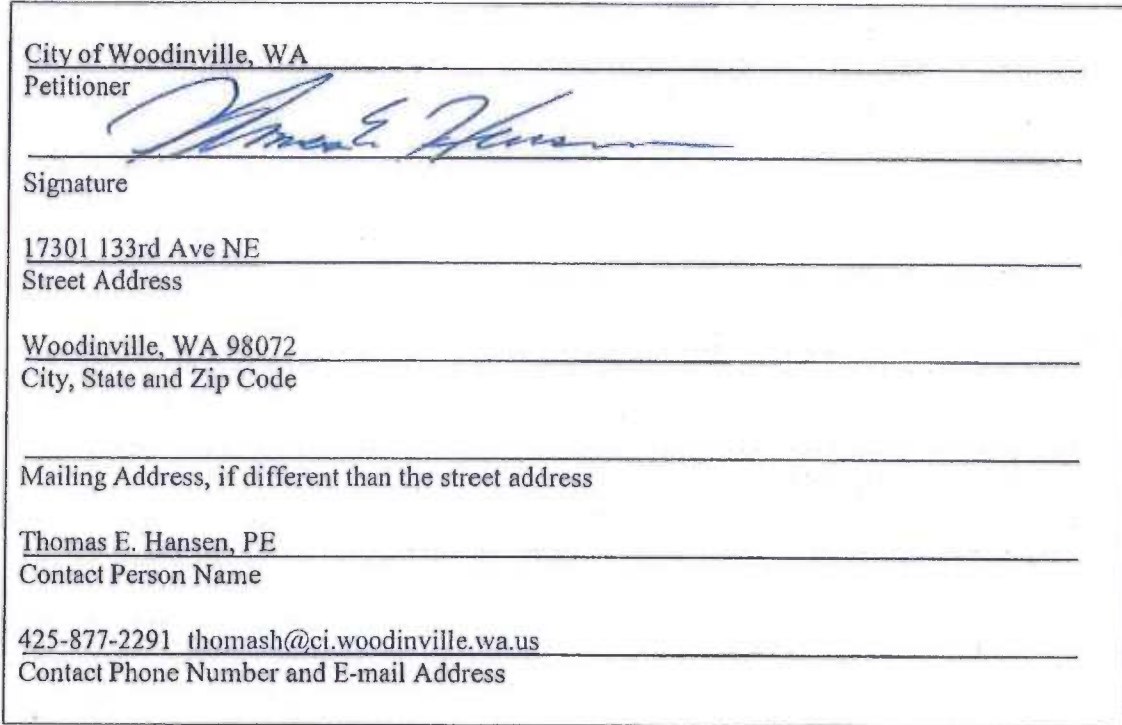 City of Woodinville, WA
Petitioner
Thomas E. Hansen
Signature
17301 133rd Ave NE
Street Address
Woodinville, WA 98072
City, State and Zip Code
Mailing Address, if different than the street address
Thomas E. Hansen, PE
Contact Person Name
425-877-2291 thomash@ci.woodinville.wa.us
Contact Phone Number and E-mail Address